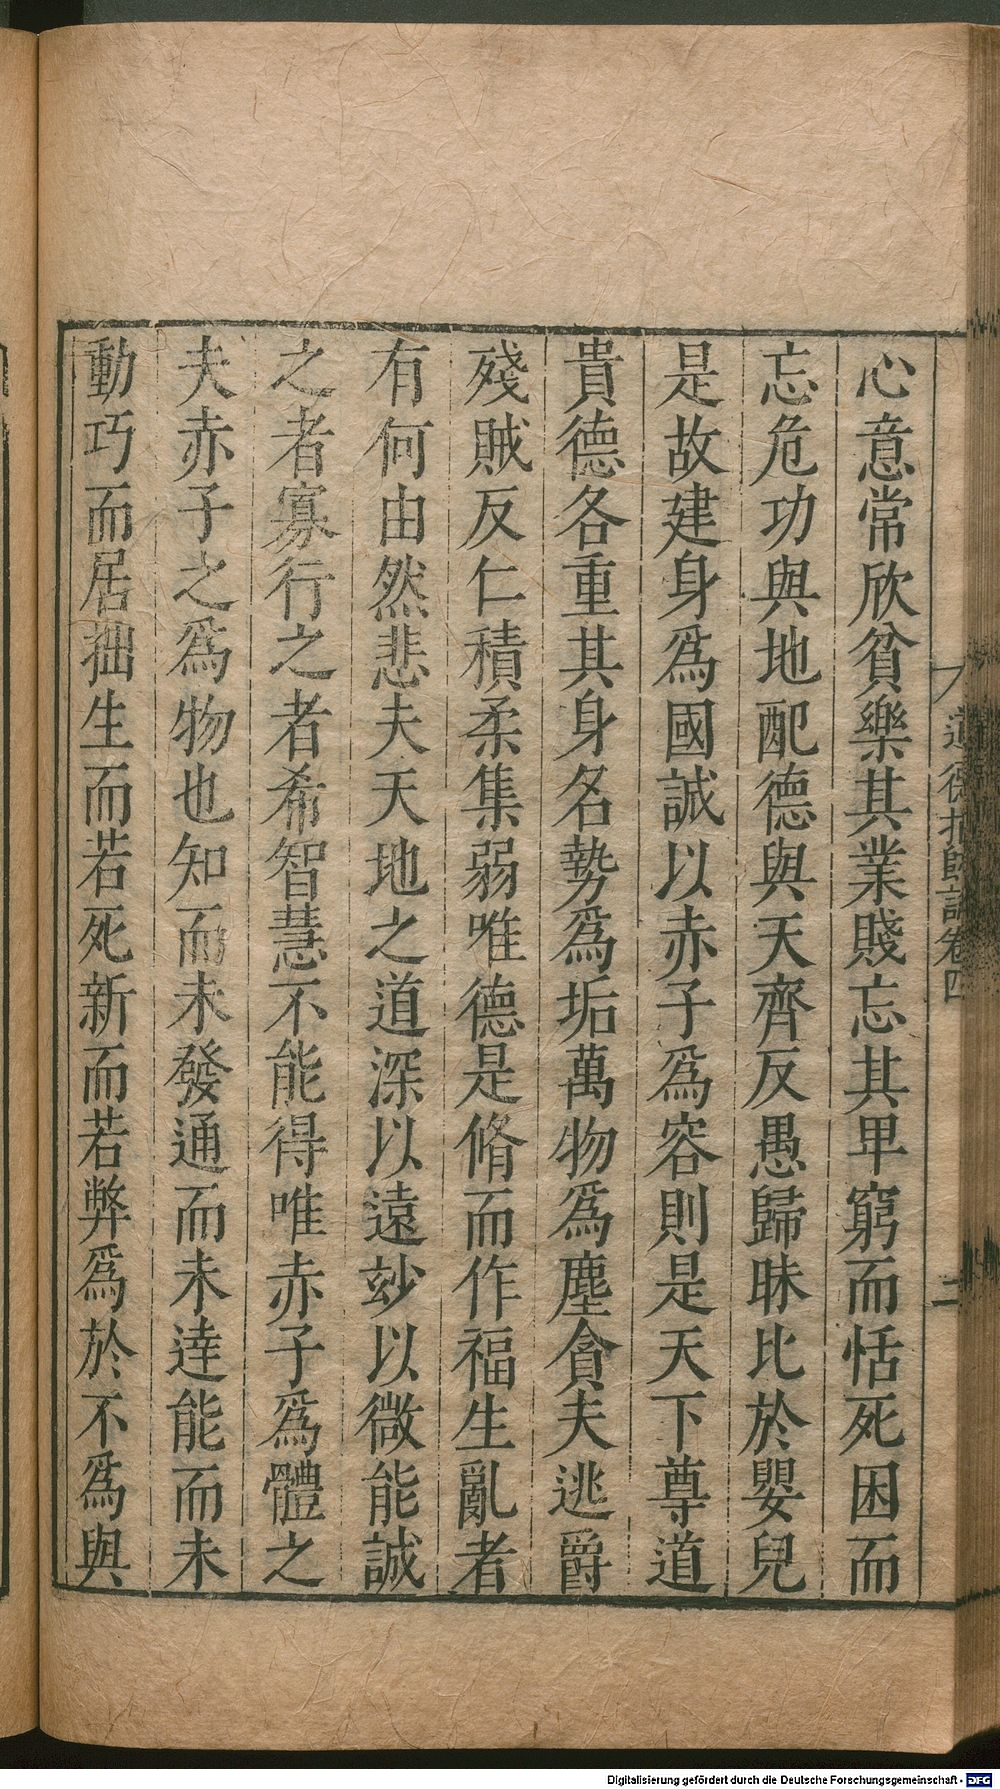 心意常欣貧樂其業賤忘其卑窮而恬死困而
忘危功與地配德與天齊反愚歸昧比於嬰兒
是故建身為國誠以赤子為容則是天下尊道
貴德各重其身名勢為垢萬物為塵貪夫逃爵
殘賊反仁積柔集弱唯德是脩而作福生亂者
有何由然悲夫天地之道深以遠玅以微能誠
之者寡行之者希智慧不能得唯赤子為體之
夫赤子之為物也知而未發通而未達能而未
動巧而居拙生而若死新而若弊為於不為與
道德指歸論卷四
二
Digitalisierung gefördert durch die Deutsche Forschungsgemeinschaft - DFG